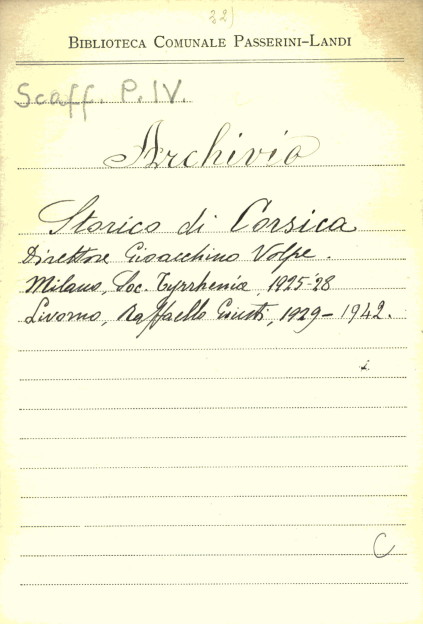 32)
BIBLIOTECA COMUNALE PASSERINI-LANDI
Scaff. P. IV.
Archivio
Storico di Corsica
Direttore Gioacchino Volpe.
Milano, Soc. Tyrrhenia, 1925-28
Livorno, Raffaello Giusti, 1929-1942.
C